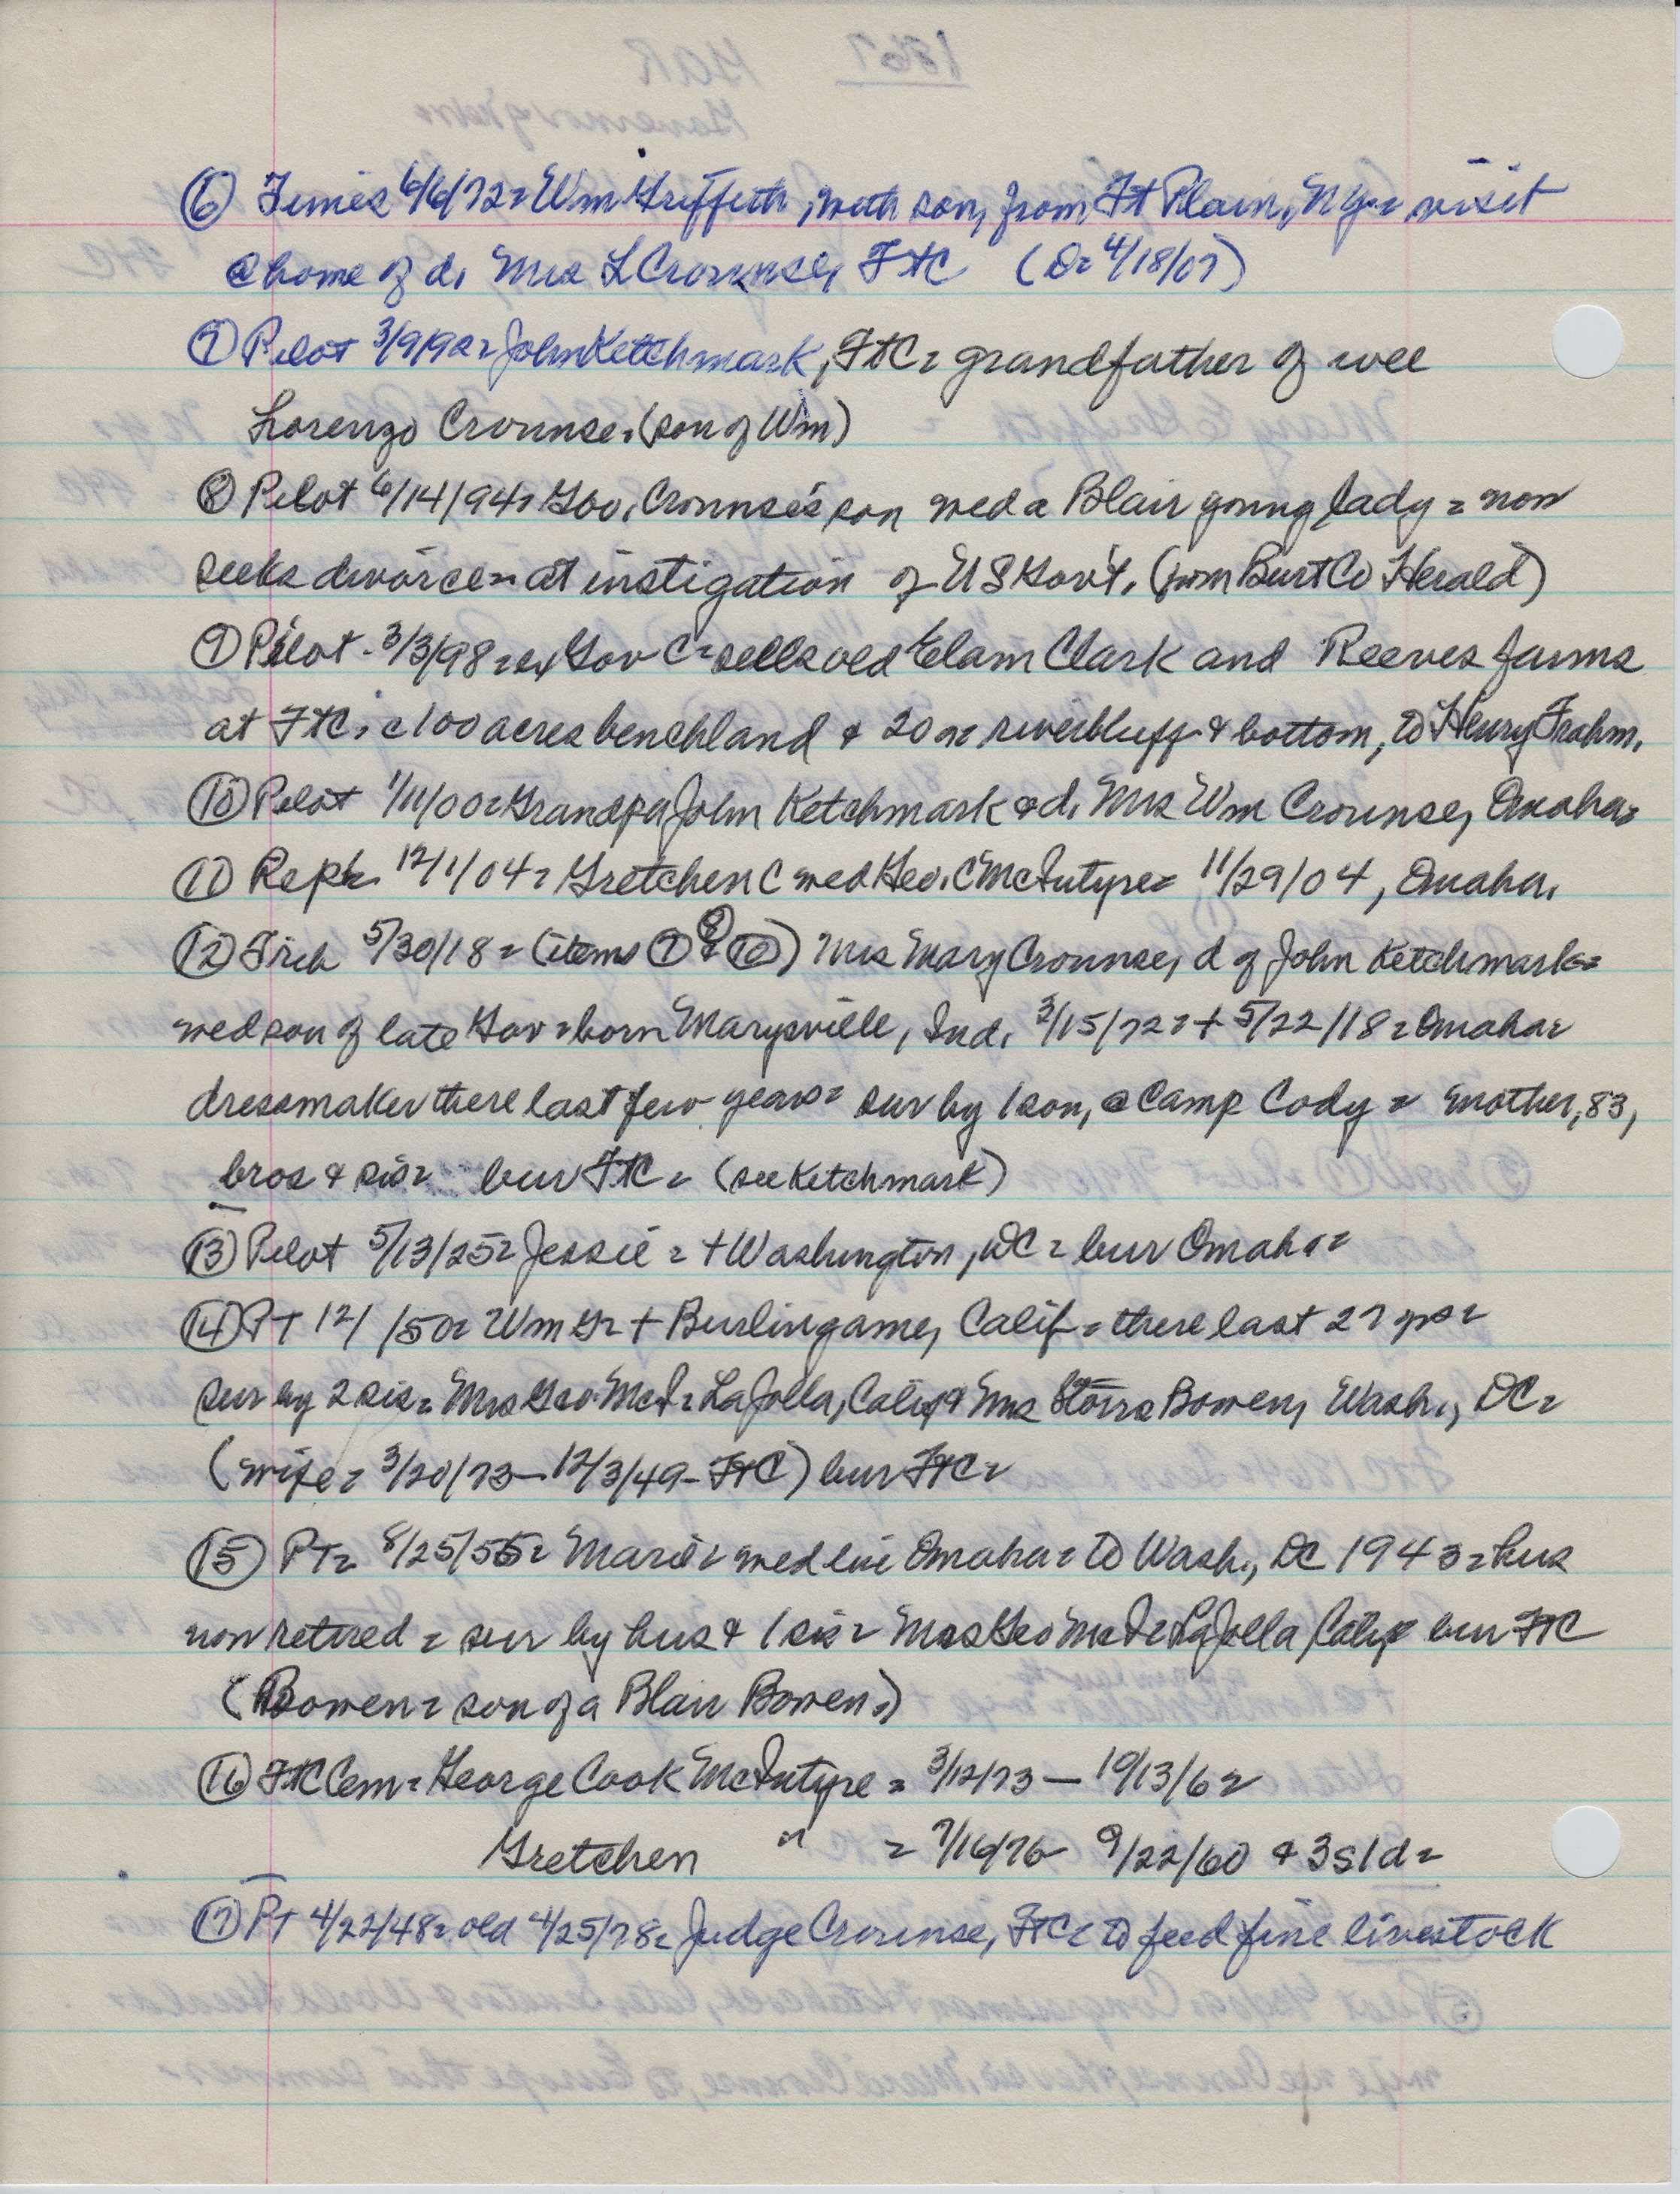 ⑥ Times 6/6/72 = Wm Griffeth, with son, from Ft Plain, NY = visit
@ home of d. Mrs L Crounse, FtC (D= 4/18/07)
⑦ Pilot 3/9/92 = John Ketchmark, FtC = grandfather of wee
Lorenzo Crounse. (son of Wm)
⑧ Pilot 6/14/94 = Gov. Crounse's son wed a Blair young lady = now
seeks divorce = at instigation of US Gov't. (from Burt Co Herald)
⑨ Pilot - 3/3/98 = ex Gov C = sells old Elam Clark and Reeves farms
at FtC. c 100 acres benchland & 20 a = riverbluff & bottom, to Henry Frahm.
⑩ Pilot 1/11/00 = Grandpa John Ketchmark & d. Mrs Wm Crounse, Omaha=
⑪ Repb. 12/1/04 = Gretchen C wed Geo. C McIntyre = 11/29/04, Omaha.
⑫ Trib 5/30/18 = (items ⑦ & ⑩) Mrs Mary Crounse, d of John Ketchmark =
wed son of late Gov = born Marysville, Ind. 3/15/72 = + 5/22/18 = Omaha =
dressmaker there last few years = sur by 1 son, @ Camp Cody = mother, 83,
bros & sis = bur FtC = (see Ketchmark)
⑬ Pilot 5/13/25 = Jessie = + Washington, DC = bur Omaha =
⑭ PT 12/ /50 = Wm G = + Burlingame, Calif = there last 27 yrs =
sur by 2 sis = Mrs Geo. McI = LaJolla, Calif & Mrs Storrs Bowen, Wash., DC =
(wife = 3/20/73 - 12/3/49 - FtC) bur FtC =
⑮ PT = 8/25/55 = Marie = wed liv Omaha = to Wash., DC 1943 = hus
now retired = sur by hus & 1 sis = Mrs Geo McI = LaJolla Calif bur FtC
(Bowen = son of a Blair Bowen.)
⑯ FtC Cem = George Cook McIntyre = 3/12/73 — 10/13/62
Gretchen " = 7/16/76 - 9/22/60 & 3 s 1 d =
⑰ PT 4/22/48 = old 4/25/78 = Judge Crounse, FtC = to feed fine livestock